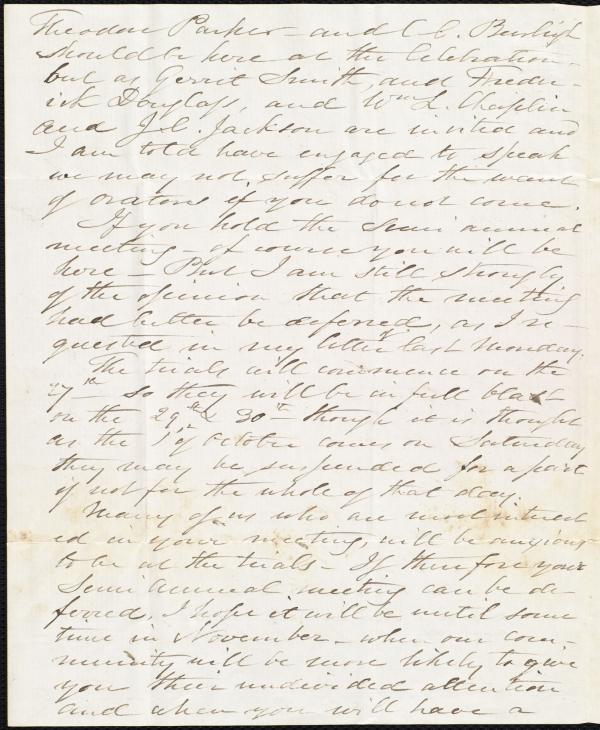 Theodore Parker - and C C. Burleigh
should be here at the Celebration -
but as Gerrit Smith, and Freder-
ick Douglass, and Wm L. Chaplin
and J. C. Jackson are invited and
I am told have engaged to speak
we may not suffer for the want
of orators if you do not come.
If you hold the Semi annual
meeting - of course you will be
here - But I am still strongly
of the opinion that the meeting
had better be deferred, as I re-
quested in my letter of last Monday.
The trials will commence on the
27th - so they will be in full blast
on the 29th & 30th - though it is thought
as the 1st of October comes on Saturday
they may be suspended for a part
if not for the whole of that day.
Many of us who are most interest
ed in your meeting, will be anxious
to be at the trials - If therefore your
Semi Annual meeting can be de-
ferred, I hope it will be until some
time in November - when our com-
munity will be more likely to give
you their undivided attention
and when you will have a